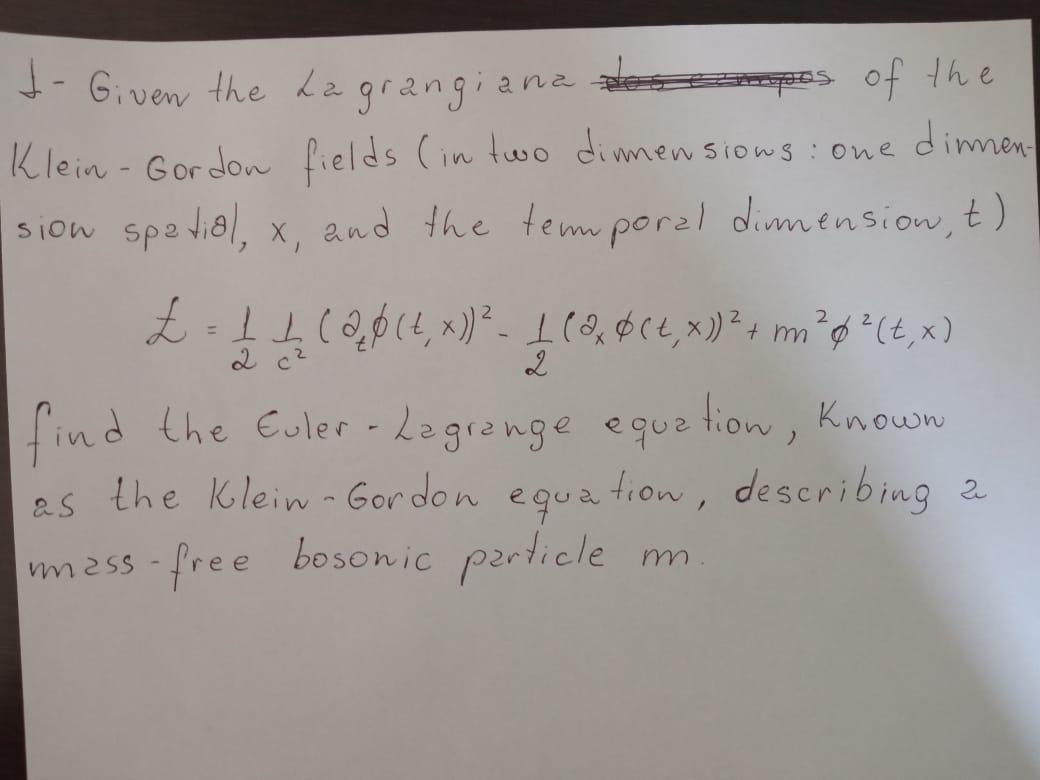 1- Given the Lagrangiana of the
Klein-Gordon fields (in two dimensions: one dimen-
sion spatial, x, and the temporal dimension, t)
£ = 1/2 1/c² (∂ₜϕ(t,x))² - 1/2 (∂ₓϕ(t,x))² + m²ϕ²(t,x)
find the Euler-Lagrange equation, known
as the Klein-Gordon equation, describing a
mass-free bosonic particle m.